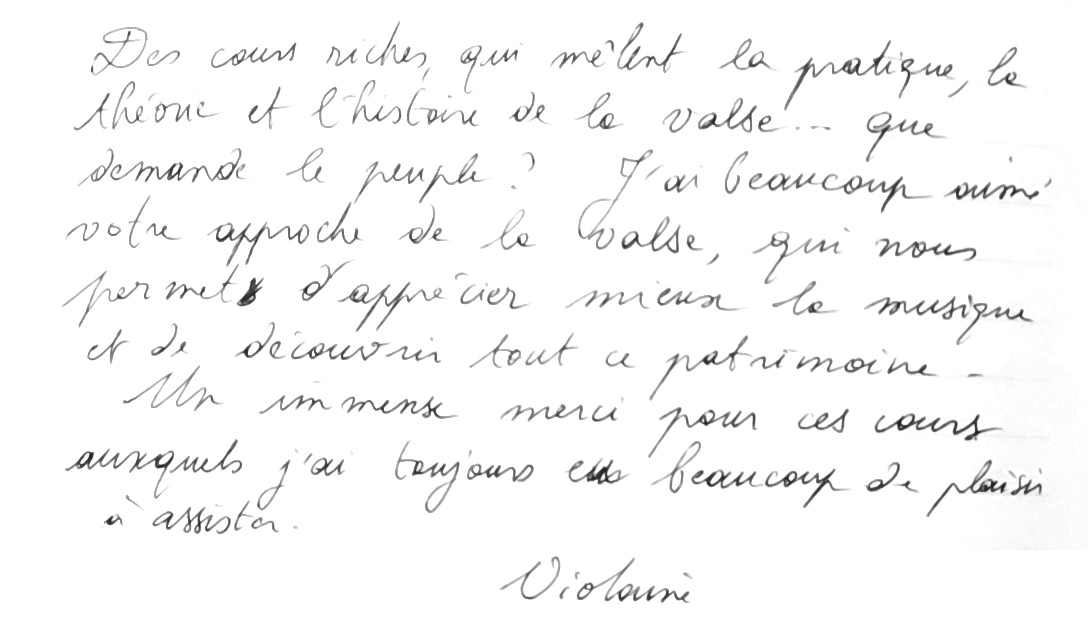 Des cours riches, qui mêlent la pratique, la
théorie et l'histoire de la valse... que
demande le peuple ? J'ai beaucoup aimé
votre approche de la valse, qui nous
permet d'apprécier mieux la musique
et de découvrir tout ce patrimoine.
Un immense merci pour ces cours
auxquels j'ai toujours eu beaucoup de plaisir
à assister.
Violaine